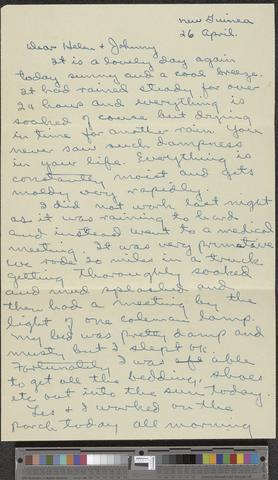 New Guinea
26 April.
Dear Helen & Johnny
It is a lovely day again
today sunny and a cool breeze.
It had rained steady for over
24 hours and everything is
soaked of course but drying
in time for another rain. You
never saw such dampness
in your life. Everything is
constantly moist and gets
moldy very rapidly.
I did not work last night
as it was raining to hard
and instead went to a medical
meeting. It was very primative
we rode 20 miles in a truck
getting thoroughly soaked
and mud splashed and
then had a meeting by the
light of one coleman lamp.
My bed was pretty damp and
musty but I slept ok.
Fortunately I was able
to get all the bedding, shoes
etc out into the sun today.
Les & I worked on the
porch today all morning